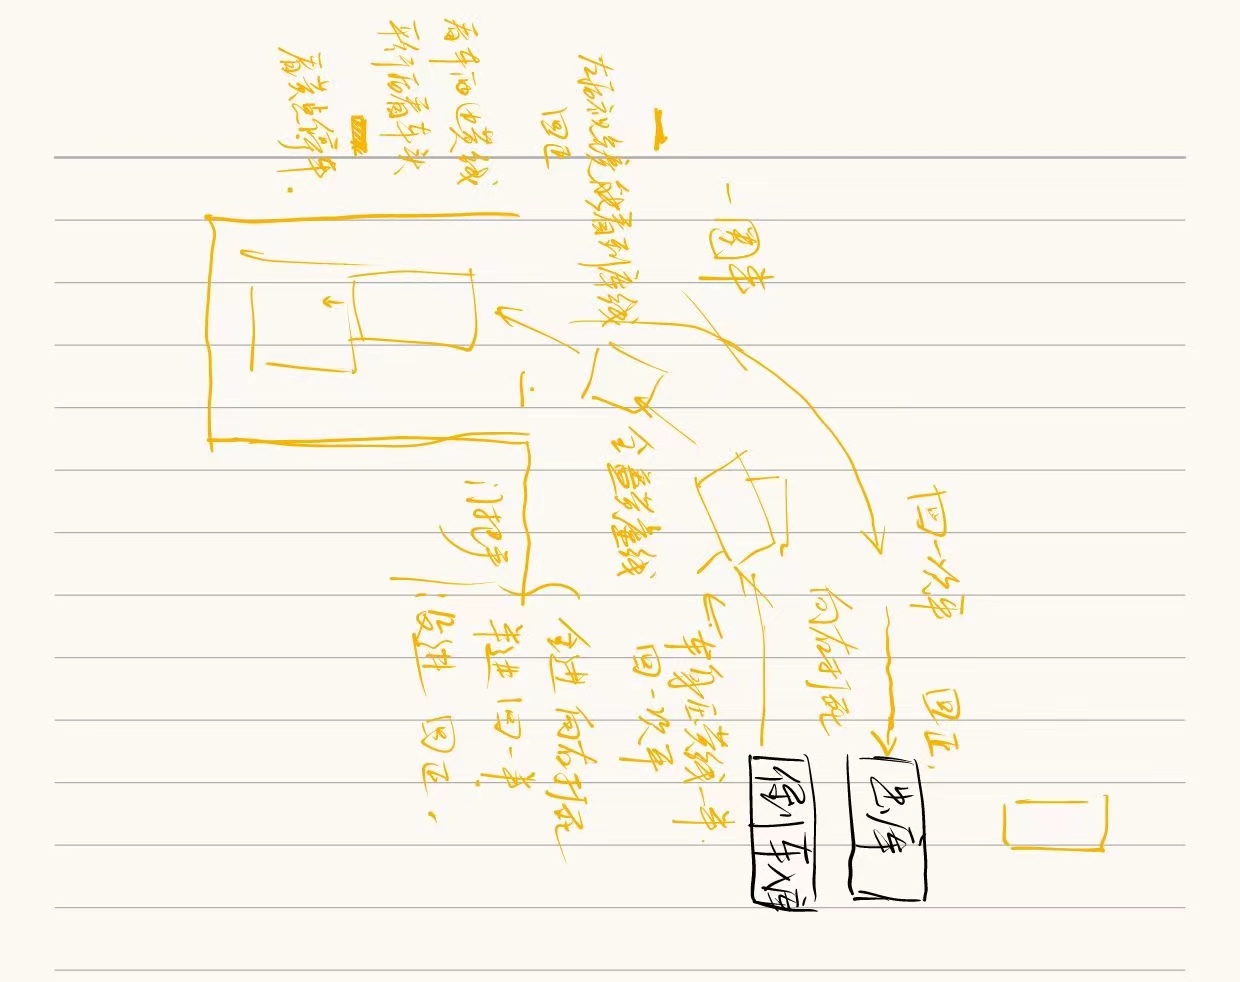 回一次半 回正.
出库
向右打死
倒车入库
一圈半
车身压黄线一半.
回一次半
左后视镜能看到库线
回正
全进 向右打死
半进 回一半.
没进 回正.
门把手
看车两边黄线
平行后看车头
看黄点停车.